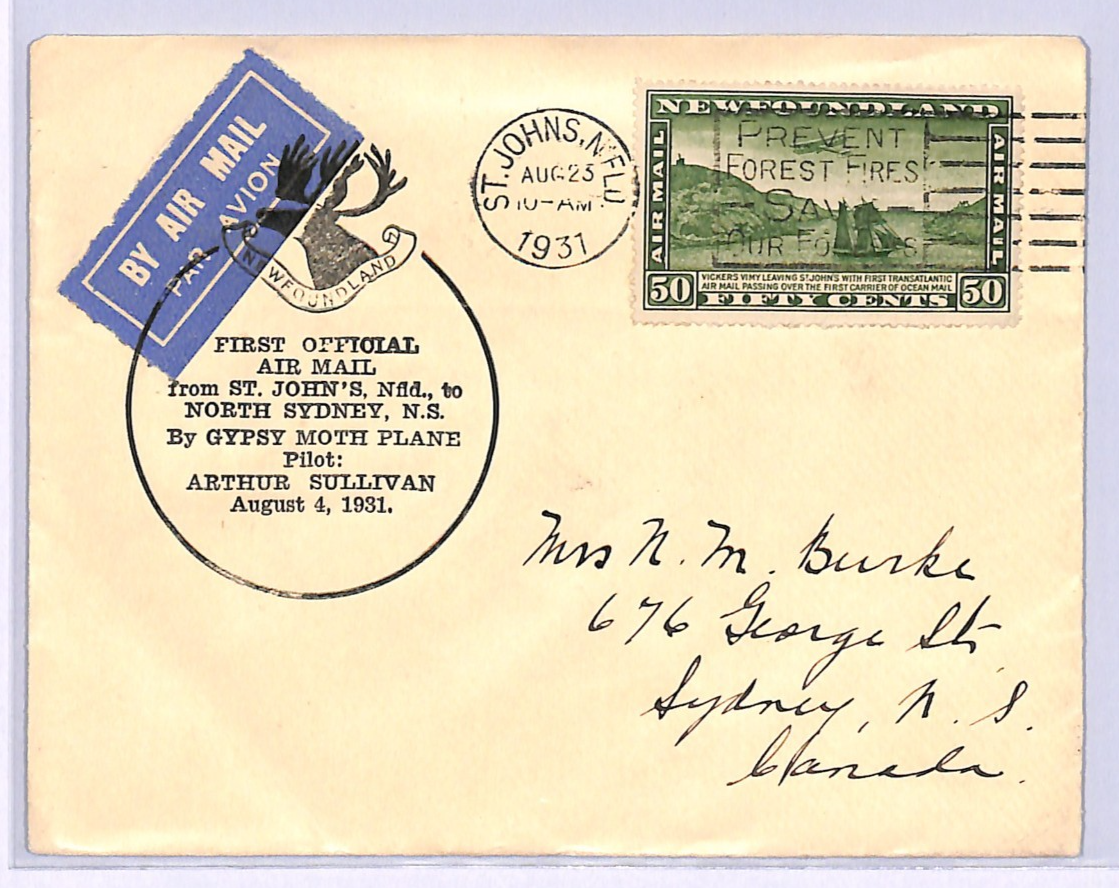 BY AIR MAIL
PAR AVION
NEWFOUNDLAND
FIRST OFFICIAL
AIR MAIL
from ST. JOHN'S, Nfld., to
NORTH SYDNEY, N.S.
By GYPSY MOTH PLANE
Pilot:
ARTHUR SULLIVAN
August 4, 1931.
ST. JOHNS, N'FLD
AUG 23
10-AM
1931
PREVENT
FOREST FIRES
SAVE
OUR FORESTS
NEWFOUNDLAND
AIR MAIL
AIR MAIL
VICKERS VIMY LEAVING ST JOHN'S WITH FIRST TRANSATLANTIC
AIR MAIL PASSING OVER THE FIRST CARRIER OF OCEAN MAIL
50 FIFTY CENTS 50
Mrs N. M. Burke
676 George St
Sydney, N. S.
Canada.